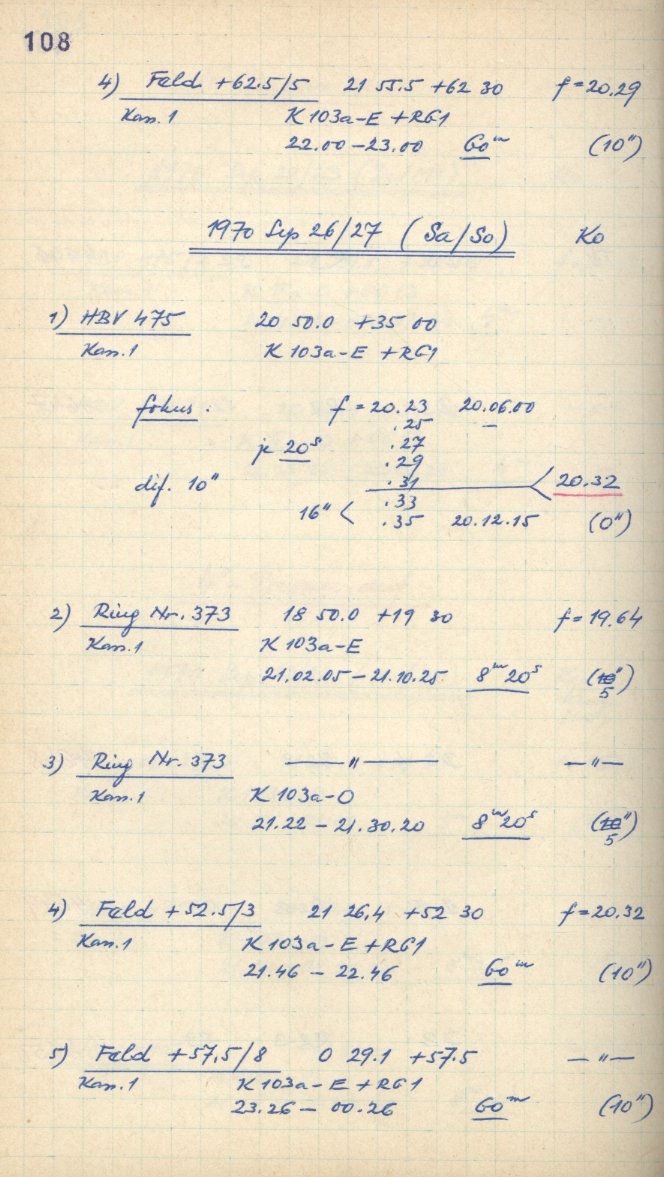 108
4) Feld +62.5/5 21 55.5 +62 30 f=20.29
Kass. 1 K 103a-E +RG1
22.00-23.00 60m (10")
1970 Sep 26/27 (Sa/So) Ko
1) HBV 475 20 50.0 +35 00
Kass. 1 K 103a-E +RG1
fokus. f = 20.23 20.06.00
.25 —
je 20s .27
.29
dif. 10" .31 < 20.32
16" < .33
.35 20.12.15 (0")
2) Ring Nr. 373 18 50.0 +19 30 f=19.64
Kass. 1 K 103a-E
21.02.05-21.10.25 8m 20s (10")
5
3) Ring Nr. 373 —"— —"—
Kass. 1 K 103a-O
21.22 - 21.30.20 8m 20s (10")
5
4) Feld +52.5/3 21 26,4 +52 30 f=20.32
Kass. 1 K 103a-E +RG1
21.46 - 22.46 60m (10")
5) Feld +57,5/8 0 29.1 +57.5 —"—
Kass. 1 K 103a-E +RG1
23.26 - 00.26 60m (10")